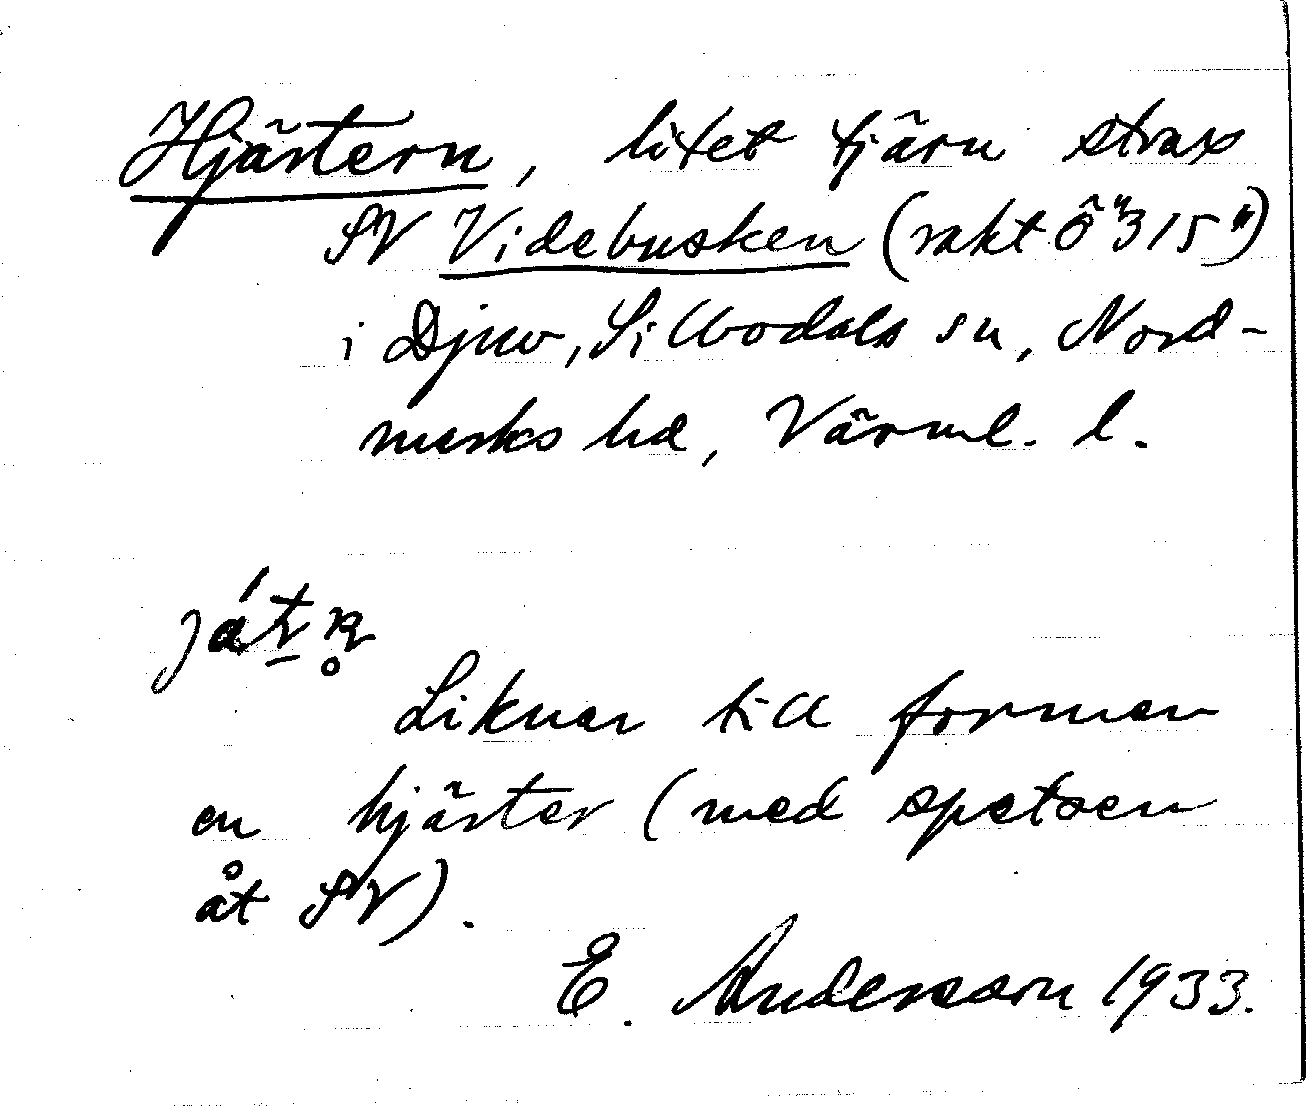 Hjärtern, litet tjärn strax
SV Videbusken (rakt Ö "315")
i Djuv, Sillbodals sn, Nord-
marks hd, Värml. l.
Liknar till formen
en hjärter (med spetsen
åt SV).
E. Andersson 1933.